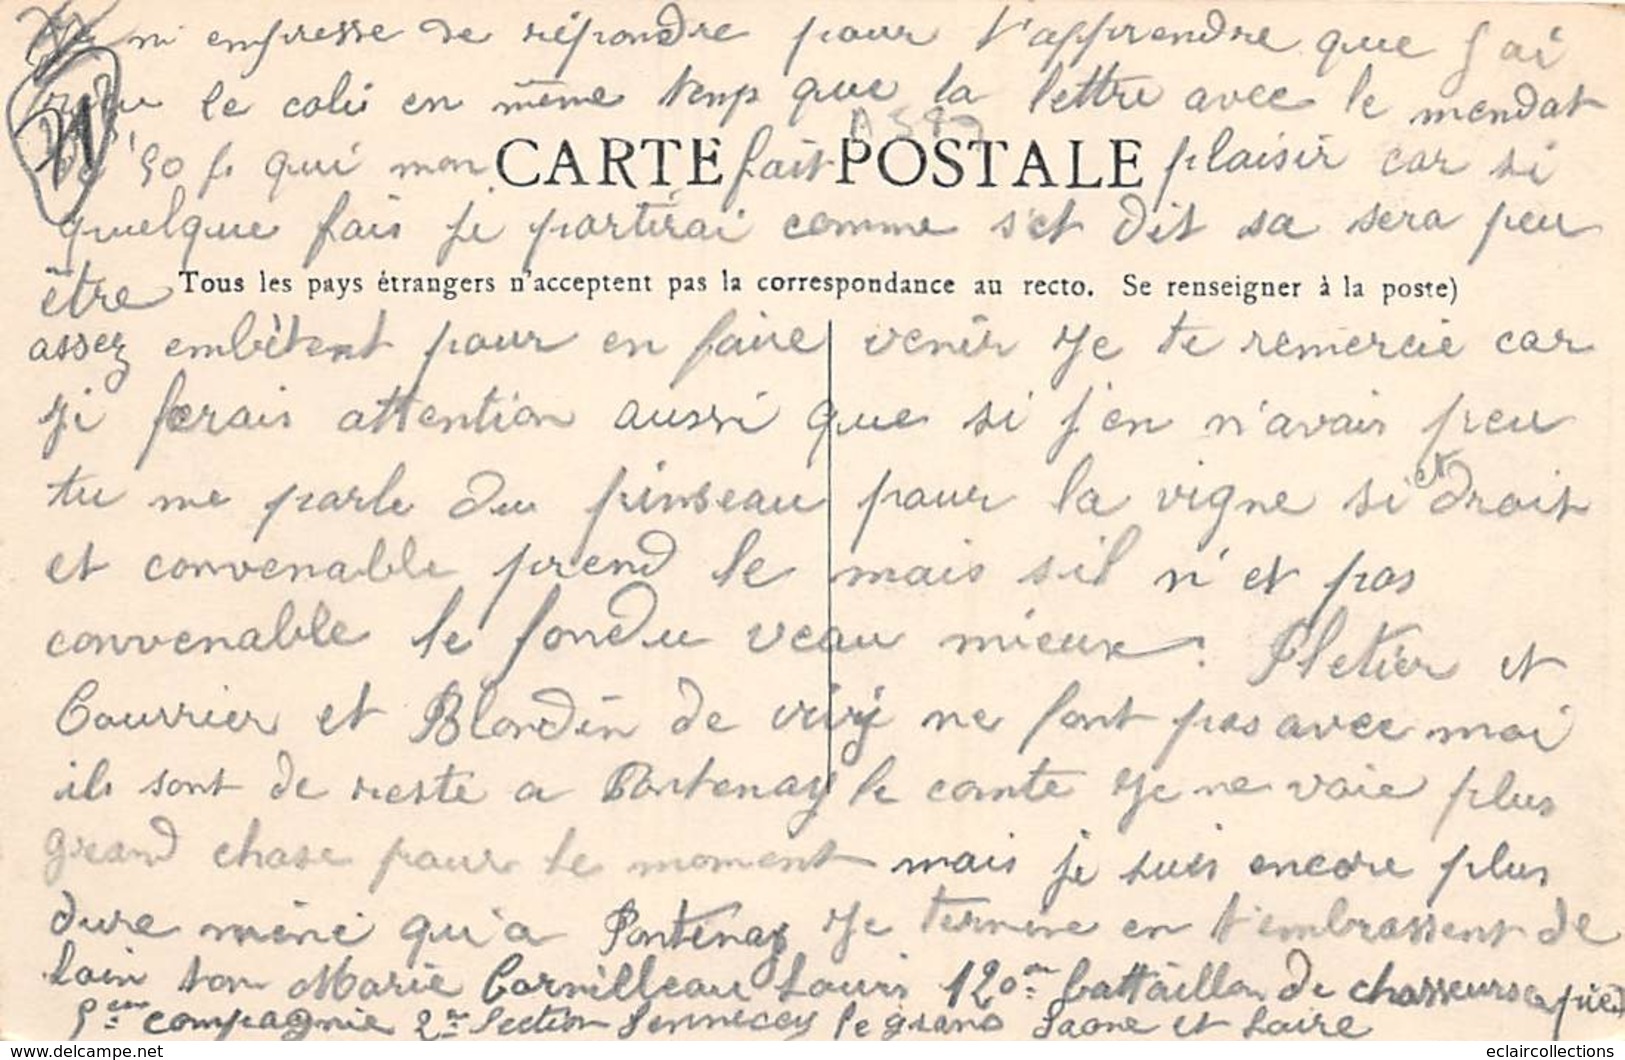 Je m empresse de répondre pour t'apprendre que j'ai
reçu le colis en même temp que la lettre avec le mendat
de 50 f. qui mon fait plaisir car si
CARTE POSTALE
quelque fais je partirai comme s'et dit sa sera peu
être
Tous les pays étrangers n'acceptent pas la correspondance au recto. Se renseigner à la poste)
assez embêtent pour en faire venir Je te remercie car
ji ferais attention aussi que si j'en n'avais peu
tu me parle du pinseau pour la vigne si et droit
et convenable prend le mais s'il n'et pas
convenable le fondu veau mieux. Pletier et
Courrier et Blondin de vivÿ ne sont pas avec moi
ils sont de reste a Fontenay le comte Je ne voie plus
grand chose pour le moment mais je suis encore plus
dure mené qu'a Fontenay Je termine en t'embrassent de
loin ton Marie Cornilleau Louis 120em battaillon de chasseurs a pied
5em compagnie 2em section Sennecey le grand Saone et Loire
eclaircollections